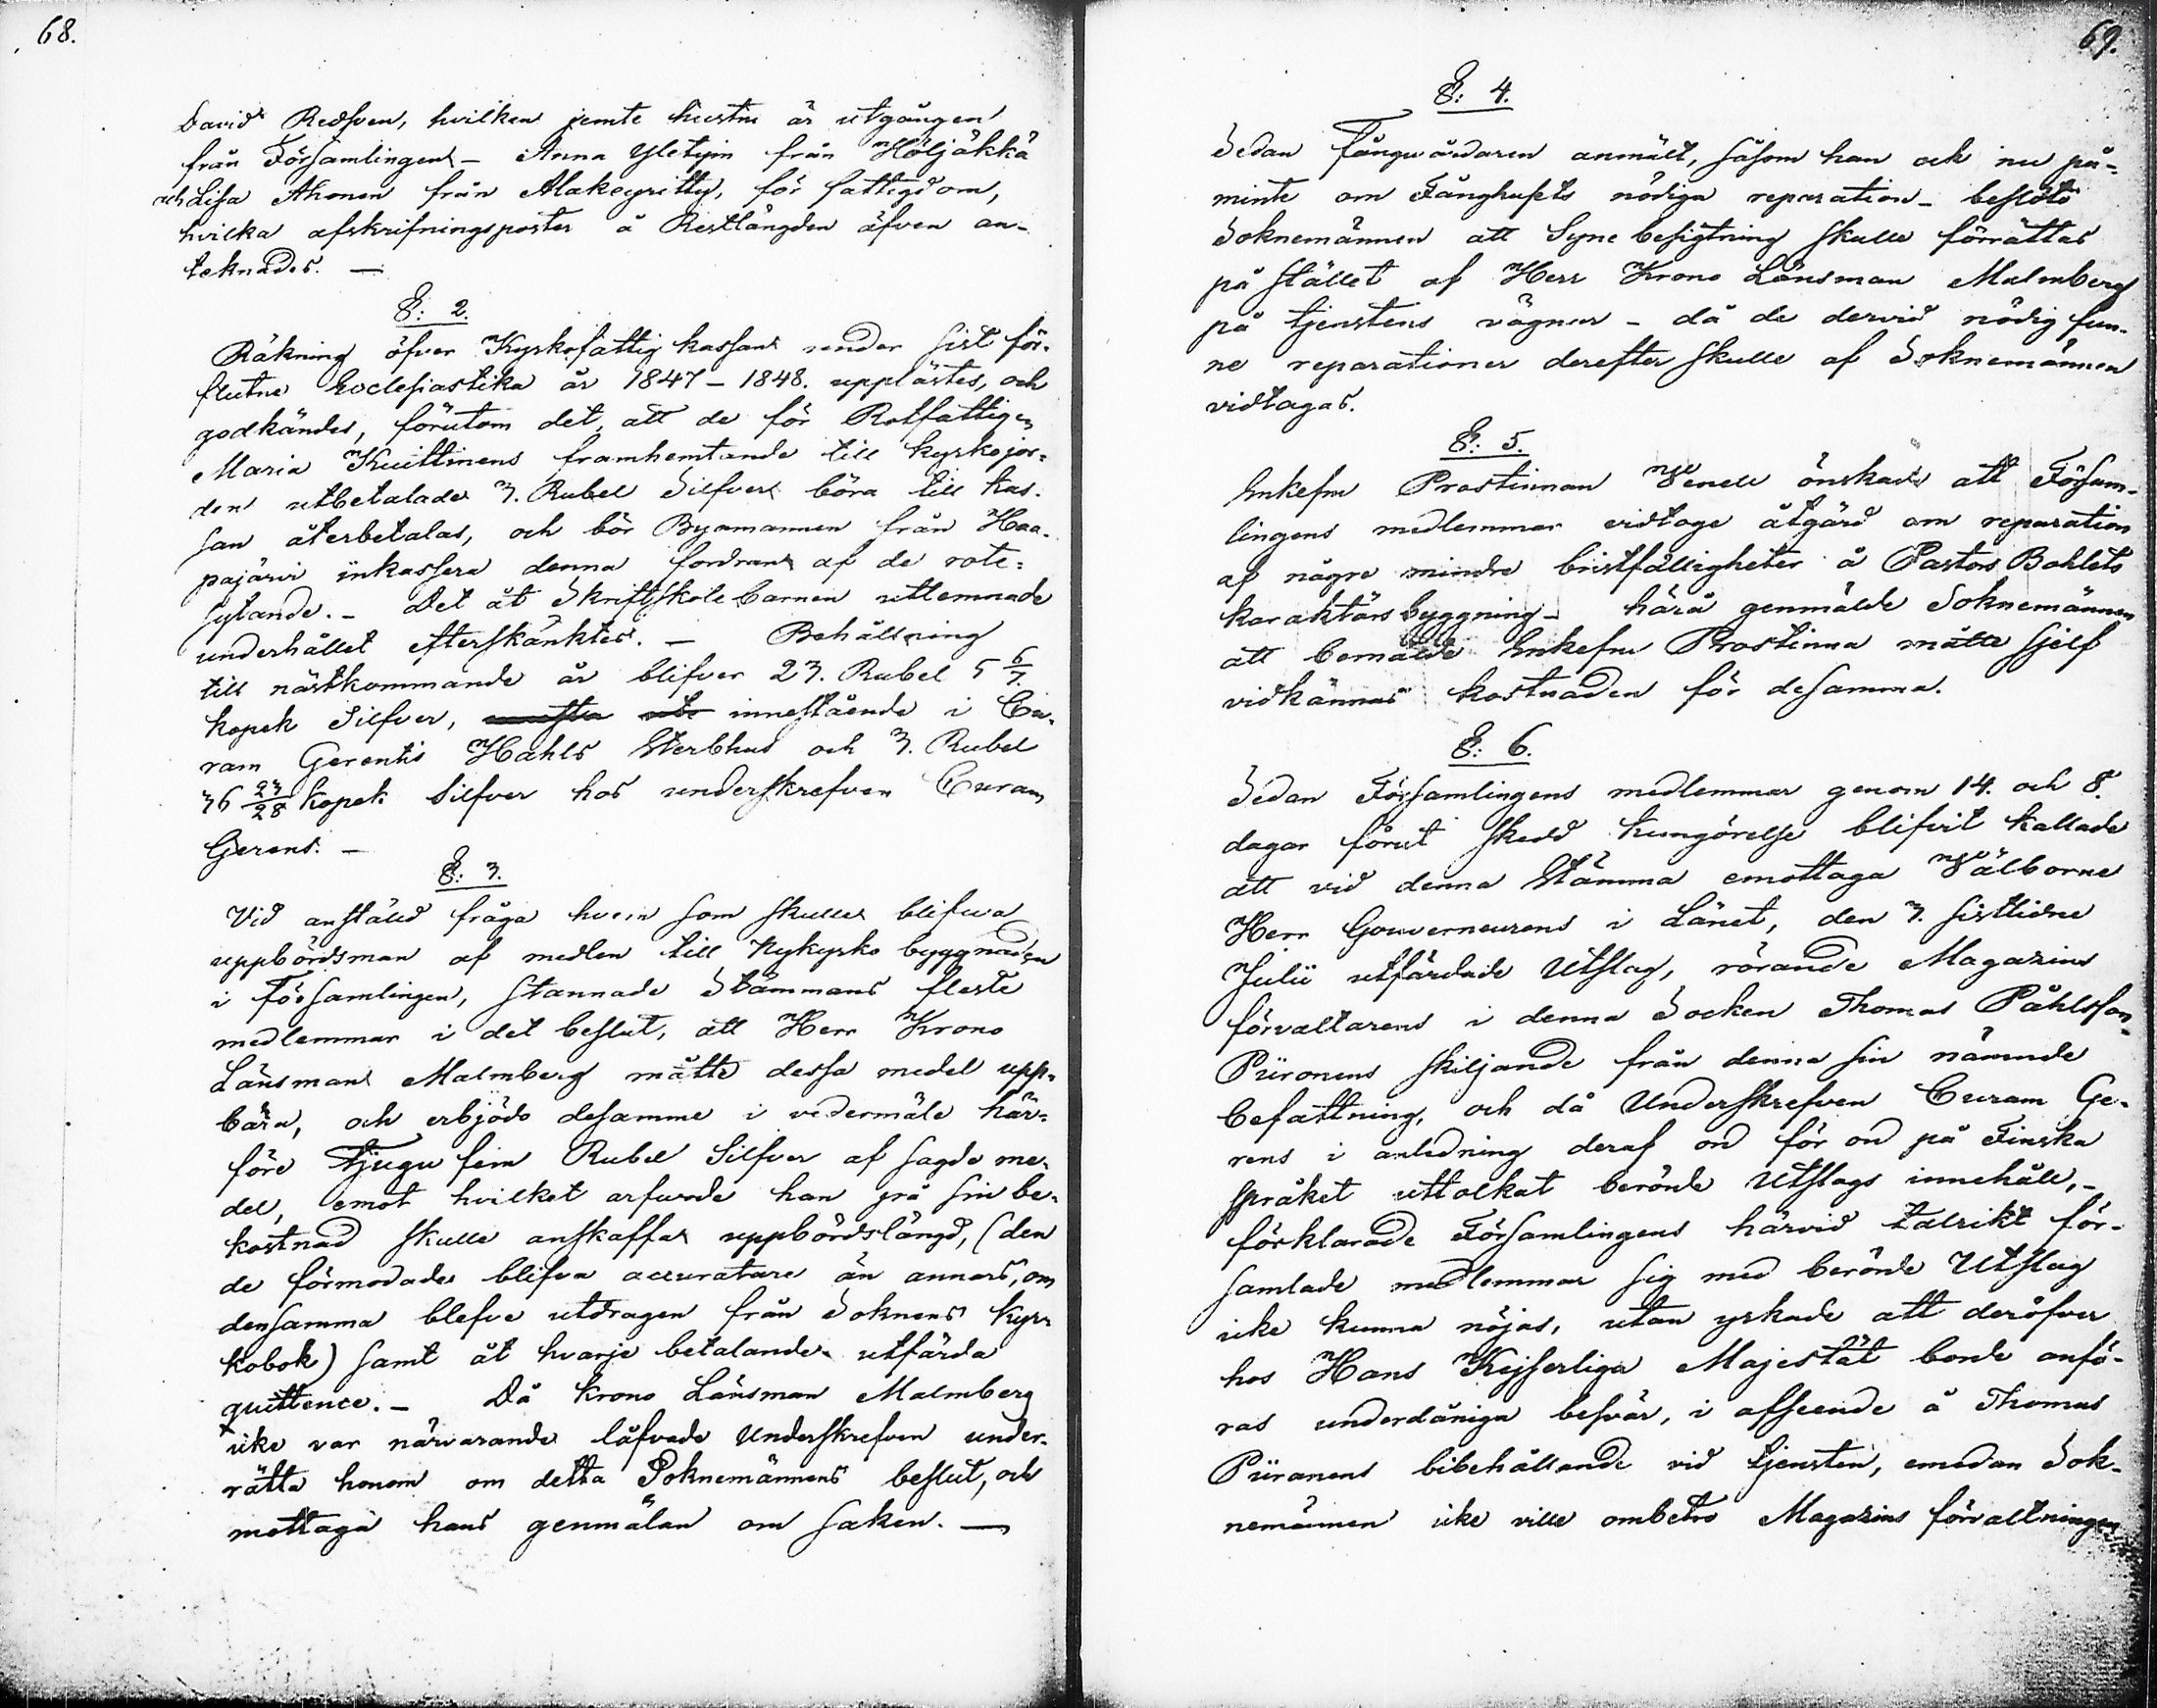 68.
David Redsven, hvilken jemte hustru är utgången
från Församlingen – Anna Yletyin från Höljäkkä
och Lisa Ahonen från Alakeyritty, för fattigdom,
hvilka afskrifningsposter å Restlängden äfven an-
teknades. —
§: 2.
Räkning öfver Kyrkofattig kassan under sist för-
flutne Ecclesiastika år 1847–1848. upplästes, och
godkändes, förutom det, att de för Rotfattigen
Maria Kuittinens framhemtande till kyrkojor-
den utbetalade 3. Rubel Silfver böra till Kas-
san återbetalas, och bör Byamannen från Haa-
pajärvi inkassera denna fordran af de rote-
sytande. – Det åt Skriftskole barnen utlemnade
underhållet efterskänktes. – Behållning
till nästkommande år blifver 23. Rubel 5 6/7.
kopek Silfver, innestående i Cu-
ram Gerentis Hahls Sterbhus och 3. Rubel
36 23/28 kopek Silfver hos underskrefven Curam
Gerens. –
§: 3.
Vid anstäld fråga hvem som skulle blifva
uppbördsman af medlen till Nykyrko byggnaden
i Församlingen, stannade Stämmans fleste
medlemmar i det beslut, att Herr Krono
Länsman Malmberg måtte dessa medel upp-
bära, och erbjöds desamme i vedermäle här-
före tjugu fem Rubel Silfver af sagde me-
del, emot hvilket arfvode han på sin be-
kostnad skulle anskaffa uppbördslängd, (den
de förmodade blifva accuratare än annars, om
densamma blefve utdragen från Soknens Kyr-
kobok) samt åt hvarje betalande utfärda
quittence. – Då Krono Länsman Malmberg
icke var närvarande låfvade Underskrefven under-
rätta honom om detta Soknemännens beslut, och
mottaga hans genmälan om saken. —
69.
§: 4.
Sedan Fångvårdaren anmält, såsom han ock nu på-
minte om Fånghusets nödiga reparation – beslöts
Soknemännen att Syne besigtning skulle förrättas
på stället af Herr Krono Länsman Malmberg
på tjenstens vägnar – då de dervid nödig fun-
ne reparationer derefter skulle af Soknemännen
vidtagas.
§: 5.
Enkefru Prostinnan Wenell önskade att Försam-
lingens medlemmar vidtoge åtgärd om reparation
af någre mindre bristfälligheter å Pastors Bohlets
karaktärsbyggning – härå genmälde Soknemännen
att bemälde Enkefru Prostinna måtte sjelf
vidkännas kostnaden för desamma.
§: 6.
Sedan Församlingens medlemmar genom 14. och 8.
dagar förut skedd kungörelse blifvit kallade
att vid denna Stämma emottaga Wälborne
Herr Gouverneurens i Länet, den 3. sistlidne
Julii utfärdade Utslag, rörande Magazins
förvaltarens i denna Socken Thomas Påhlsson
Piironens skiljande från denna sin nämnde
befattning, och då Underskrefven Curam Ge-
rens i anledning deraf ord för ord på Finska
språket uttolkat berörde Utslags innehåll, –
förklarade Församlingens härvid talrikt för-
samlade medlemmar sig med berörde Utslag
icke kunna nöjas, utan yrkade att deröfver
hos Hans Kejserliga Majestät borde anfö-
ras underdåniga besvär, i afseende å Thomas
Piiranens bibehållande vid tjensten, emedan Sok-
nemännen icke ville ombetro Magazins förvaltningen